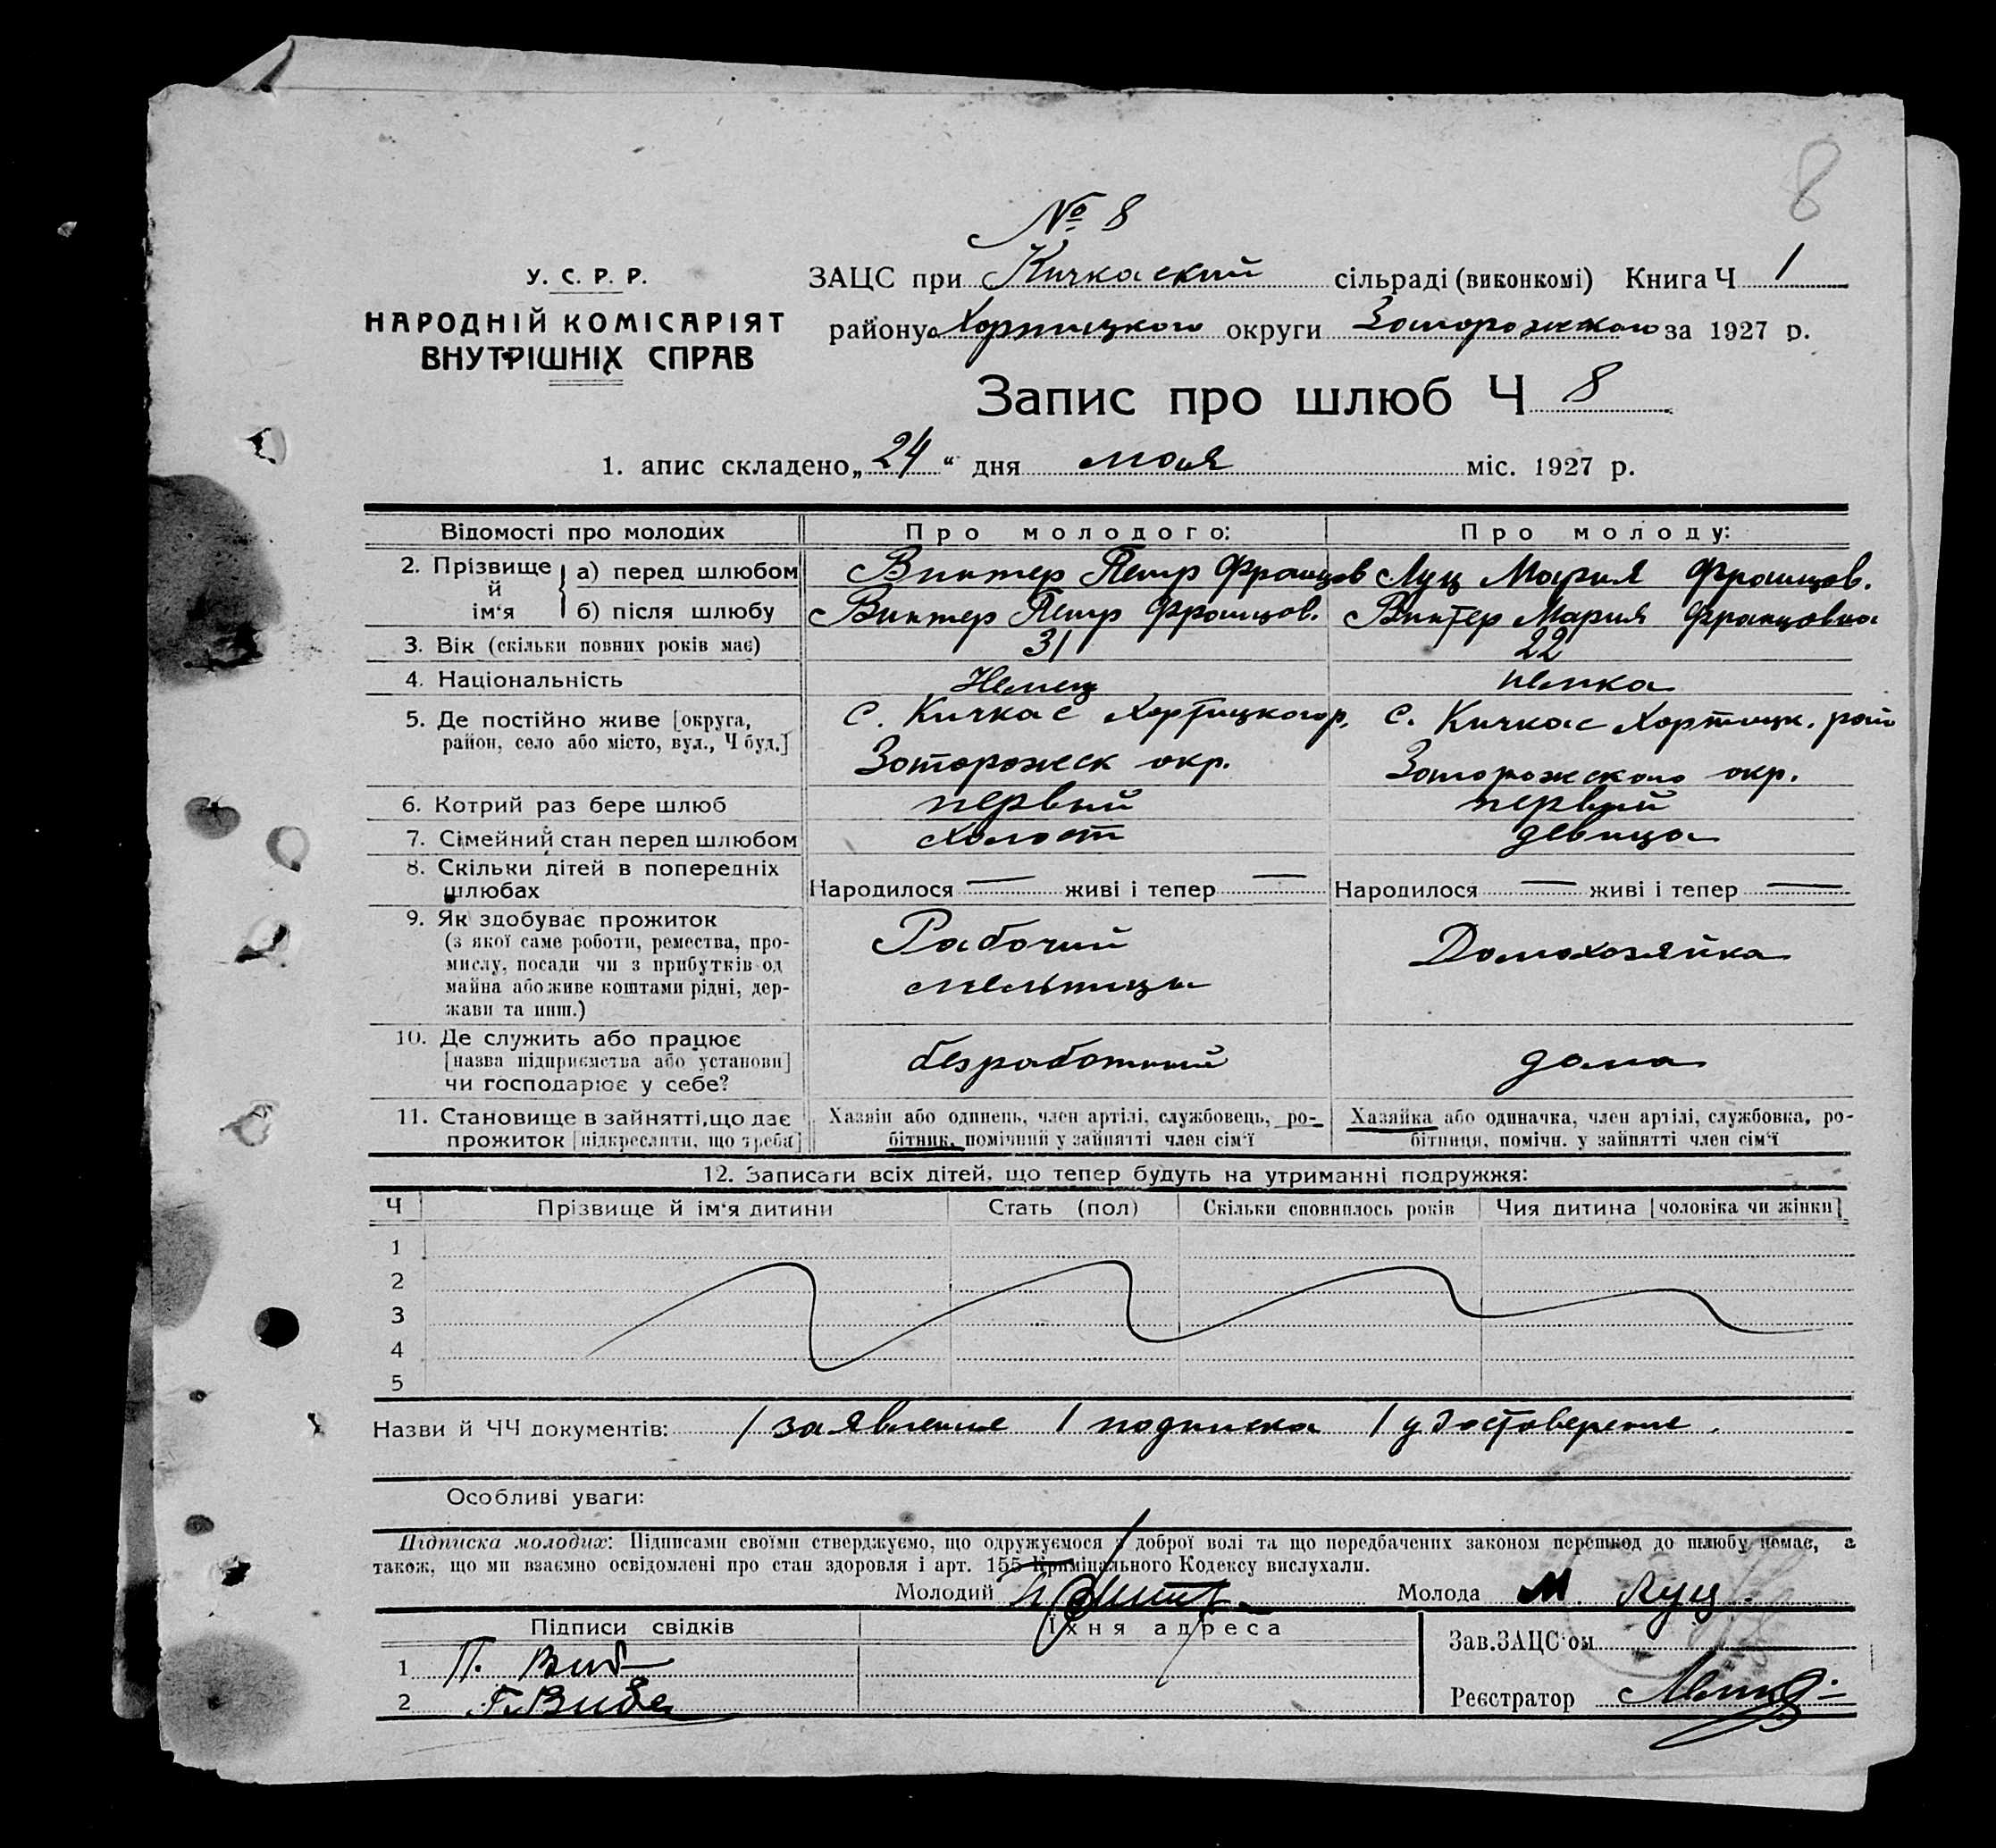 8
№ 8
У. С. Р. Р.
НАРОДНІЙ КОМІСАРІЯТ
ВНУТРІШНІХ СПРАВ
ЗАЦС при Кичкаский сільраді (виконкомі) Книга Ч 1
району Хортицкого округи Запорожского за 1927 р.
Запис про шлюб Ч 8
1. апис складено „ 24 “ дня мая міс. 1927 р.
Відомості про молодих Про молодого: Про молоду:
2. Прізвище й ім'я а) перед шлюбом Винтер Петр Францов Луц Мария Францов.
б) після шлюбу Винтер Петр Францов. Винтер Мария Францовна
3. Вік (скільки повних років має) 31 22
4. Національність Немец немка
5. Де постійно живе [округа, с. Кичкас Хортицкого р. с. Кичкас Хортицк. рай
район, село або місто, вул., Ч буд.] Запорожеск окр. Запорожского окр.
6. Котрий раз бере шлюб первый первый
7. Сімейний стан перед шлюбом холост девица
8. Скільки дітей в попередніх
шлюбах Народилося — живі і тепер — Народилося — живі і тепер —
9. Як здобуває прожиток Рабочий Домохозяйка
(з якої саме роботи, ремества, про-
мислу, посади чи з прибутків од мельницы
майна або живе коштами рідні, дер-
жави та инш.)
10. Де служить або працює
[назва підприємства або установи] безработный дома
чи господарює у себе?
11. Становище в зайнятті, що дає Хазяін або одинець, член артілі, службовець, ро- Хазяйка або одиначка, член артілі, службовка, ро-
прожиток [підкреслити, що треба] бітник, помічний у зайнятті член сім'ї бітниця, помічн. у зайнятті член сім'ї
12. Записати всіх дітей, що тепер будуть на утриманні подружжя:
Ч Прізвище й ім'я дитини Стать (пол) Скільки сповнилось років Чия дитина [чоловіка чи жінки]
1
2
3
4
5
Назви й ЧЧ документів: 1 заявление 1 подписка 1 удостоверение.
Особливі уваги:
Підписка молодих: Підписами своїми стверджуємо, що одружуємося з доброї волі та що передбачених законом перешкод до шлюбу немає, а
також, що ми взаємно освідомлені про стан здоровля і арт. 155 Кримінального Кодексу вислухали.
Молодий Молода М. Луц
Підписи свідків Їхня адреса Зав. ЗАЦС'ом
1 П. Виб
2 Г. Вибе Реєстратор